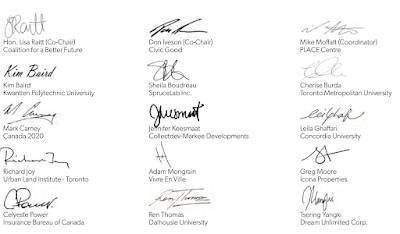 Hon. Lisa Raitt (Co-Chair)
Coalition for a Better Future
Don Iveson (Co-Chair)
Civic Good
Mike Moffatt (Coordinator)
PLACE Centre
Kim Baird
Kim Baird
Kwantlen Polytechnic University
Sheila Boudreau
SpruceLab Inc.
Cherise Burda
Toronto Metropolitan University
Mark Carney
Canada 2020
Jennifer Keesmaat
Collectdev-Markee Developments
Leila Ghaffari
Concordia University
Richard Joy
Urban Land Institute - Toronto
Adam Mongrain
Vivre En Ville
Greg Moore
Icona Properties
Celyeste Power
Insurance Bureau of Canada
Ren Thomas
Ren Thomas
Dalhousie University
Tsering Yangki
Dream Unlimited Corp.